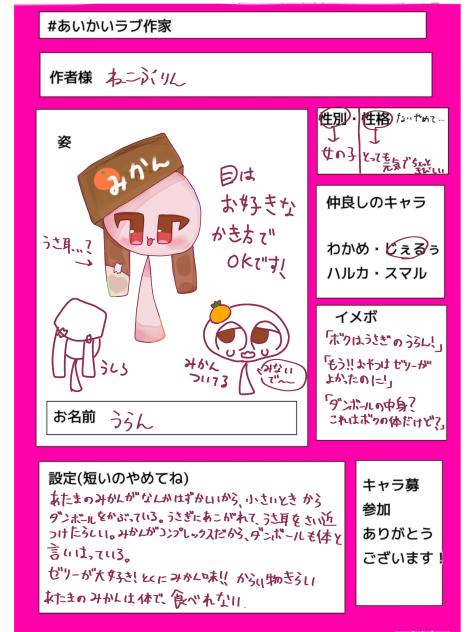 #あいかいラブ作家
作者様 ねこぷりん
姿
みかん
うさ耳…?
目は
お好きな
かき方で
OKです!
うしろ
みかん
ついてる
みないで〜
お名前 うらん
性別・性格
女の子
とっても
元気で
仲良しのキャラ
わかめ・じぇるぅ
ハルカ・スマル
イメボ
「ボクはうさぎのうらん!」
「もう!!おやつはゼリーが
よかったのに!」
「ダンボールの中身?
これはボクの体だけど?」
設定(短いのやめてね)
あたまのみかんがなんかはずかしいから、小さいときから
ダンボールをかぶっている。うさぎにあこがれて、うさ耳をさい近
つけたらしい。みかんがコンプレックスだから、ダンボールも体と
言いはっている。
ゼリーが大好き!とくにみかん味!!からい物きらい
あたまのみかんは体で、食べれない
キャラ募
参加
ありがとう
ございます!